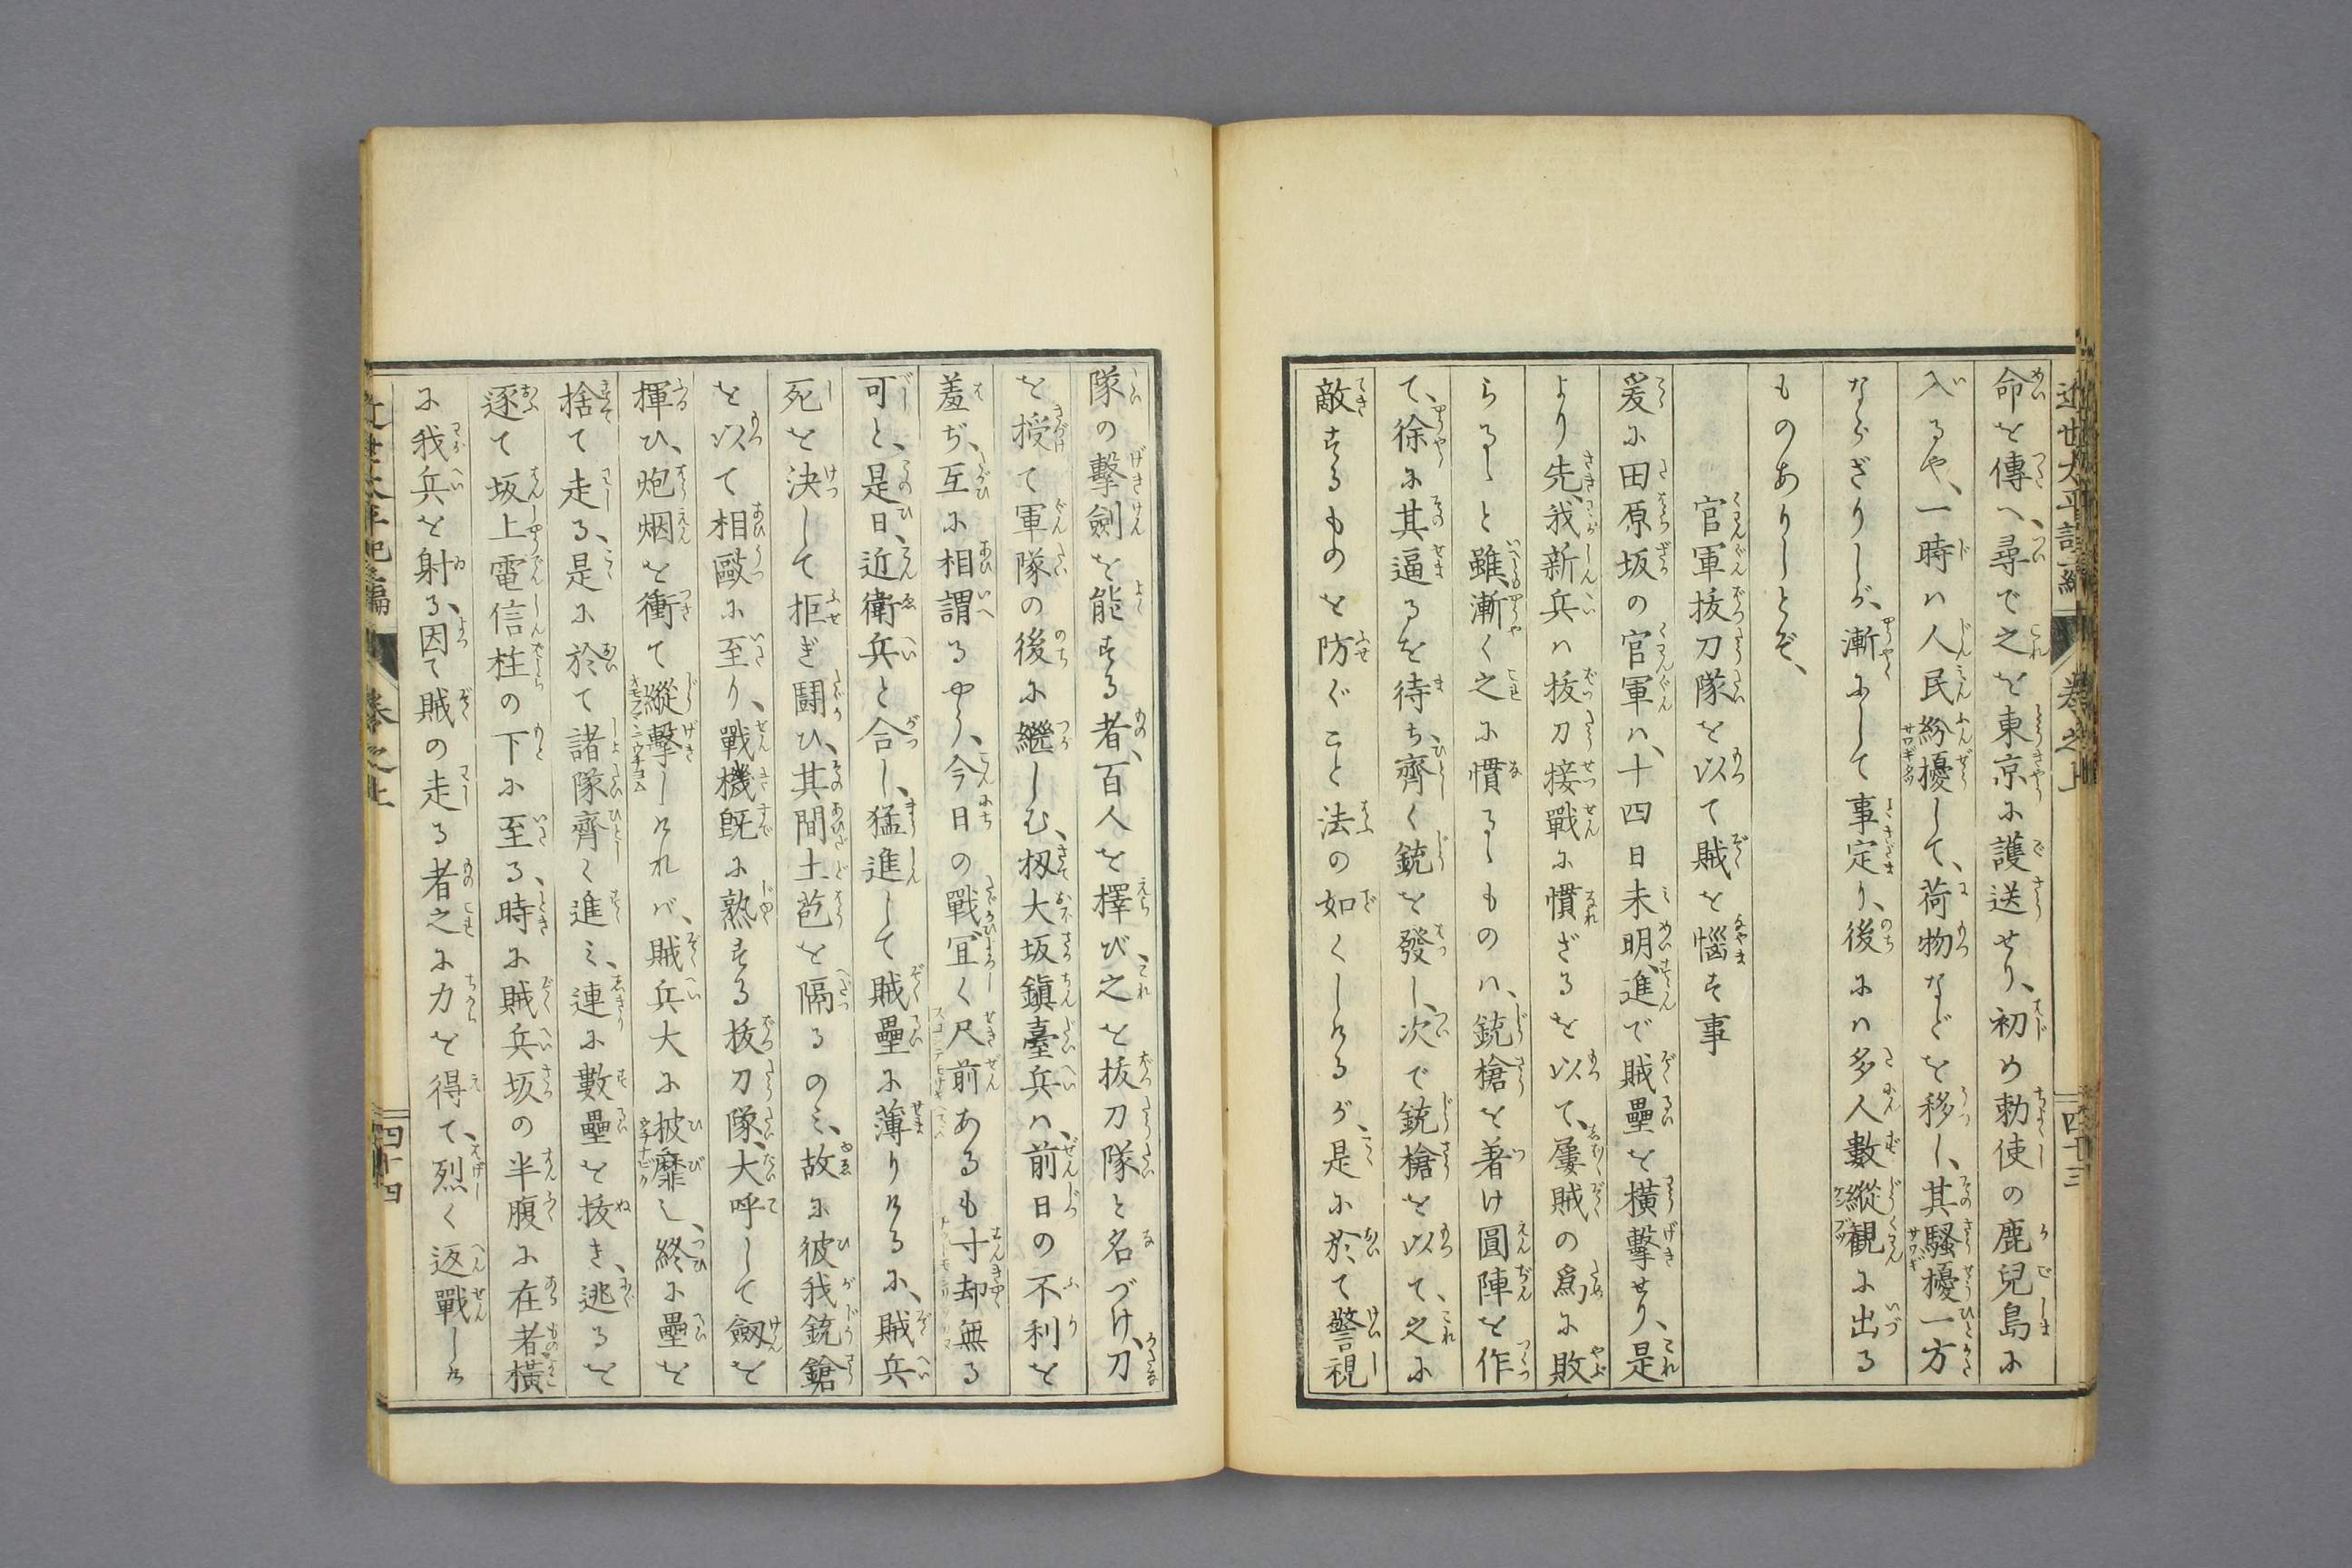 命を傳へ、尋で之を東京に護送せり、初め勅使の鹿兒島に
入るや、一時ハ人民紛擾して、荷物などを移し、其騷擾一方
ならざりしが、漸にして事定り、後にハ多人數縱観に出る
ものありしとぞ、
官軍抜刀隊を以て賊を惱す事
爰に田原坂の官軍ハ、十四日未明、進で賊壘を橫擊せり、是
より先、我新兵ハ抜刀接戰に慣ざるを以て、屢賊の爲に敗
らるゝと雖、漸く之に慣るゝものハ、銃槍を着け圓陣を作
て、徐に其逼るを待ち、齊く銃を發し、次で銃槍を以て、之に
敵するものを防ぐこと法の如くしけるが、是に於て警視
隊の擊劍を能する者、百人を擇び、之を抜刀隊と名づけ、刀
を授て軍隊の後に繼しむ、扨大坂鎭臺兵ハ、前日の不利を
羞ぢ、互に相謂るやう、今日の戰、宜く尺前あるも寸却無る
可と、是日、近衛兵と合し、猛進して賊壘に薄りけるに、賊兵
死を決して拒ぎ鬪ひ、其間土苞を隔るのミ、故に彼我銃鎗
を以て相毆に至り、戰機既に熟する抜刀隊、大呼して劔を
揮ひ、炮烟を衝て縱擊しければ、賊兵大に披靡し、終に壘を
捨て走る、是に於て諸隊齊く進ミ、連に數壘を抜き、逃るを
逐て坂上電信柱の下に至る、時に賊兵坂の半腹に在者橫
に我兵を射る、因て賊の走る者之に力を得て、烈く返戰しけ
巻之上
四十三
四十四